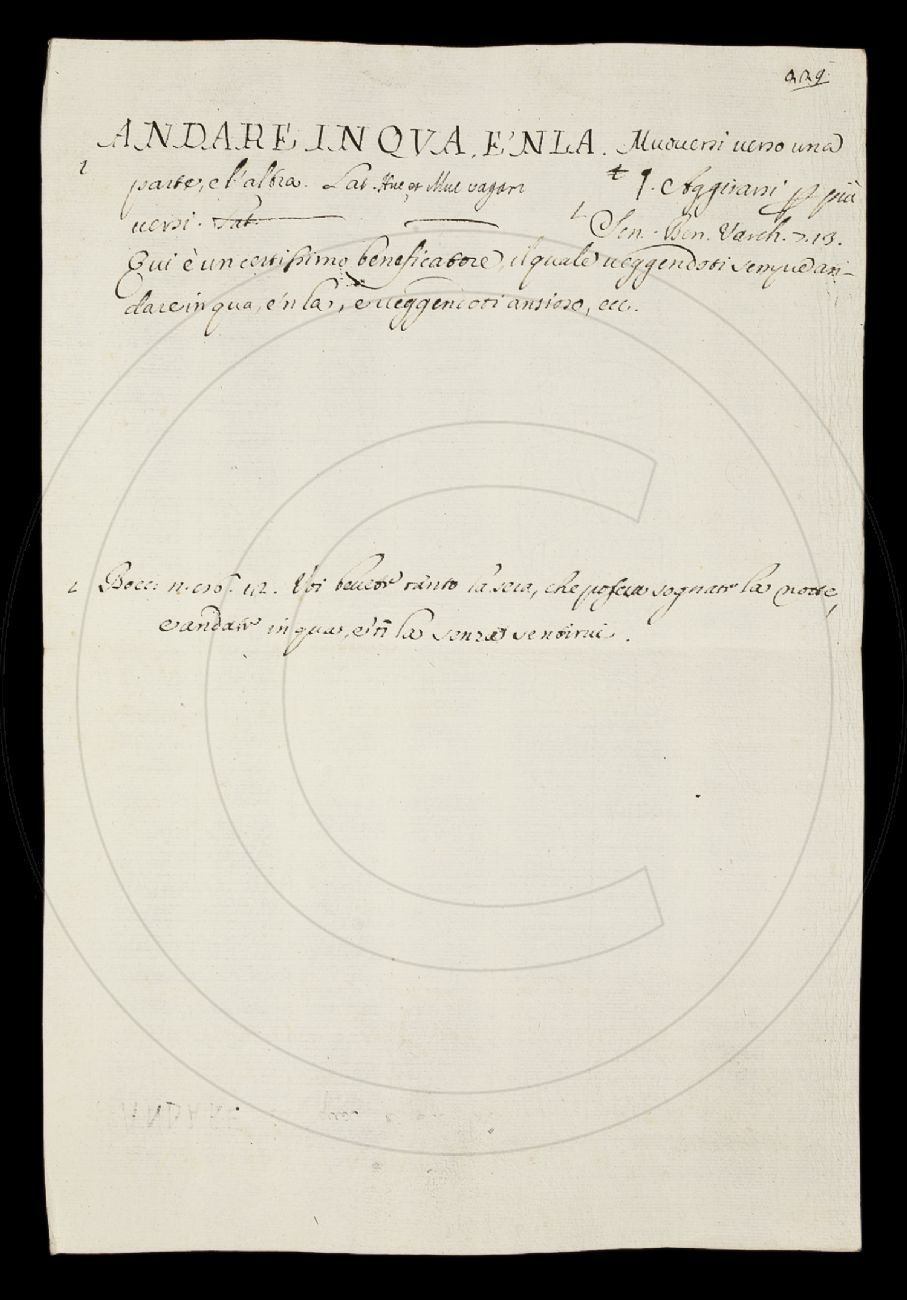 229.
ANDARE IN QVA, E'N LA. Muoversi verso una
parte, e l'altra. Lat. Huc et illuc vagari ¶. Aggirarsi p più
versi. Lat. Sen. Ben. Varch. 7. 13.
Qui è un certissimo beneficatore, il quale veggendoti sempre an-
dare in qua, e'n la, e veggendoti ansioso, ecc.
Bocc. n. 76. 12. Voi bevete tanto la sera, che poscia sognate la notte,
e andate in qua, e'n la senza sentirvi.
ANDARE